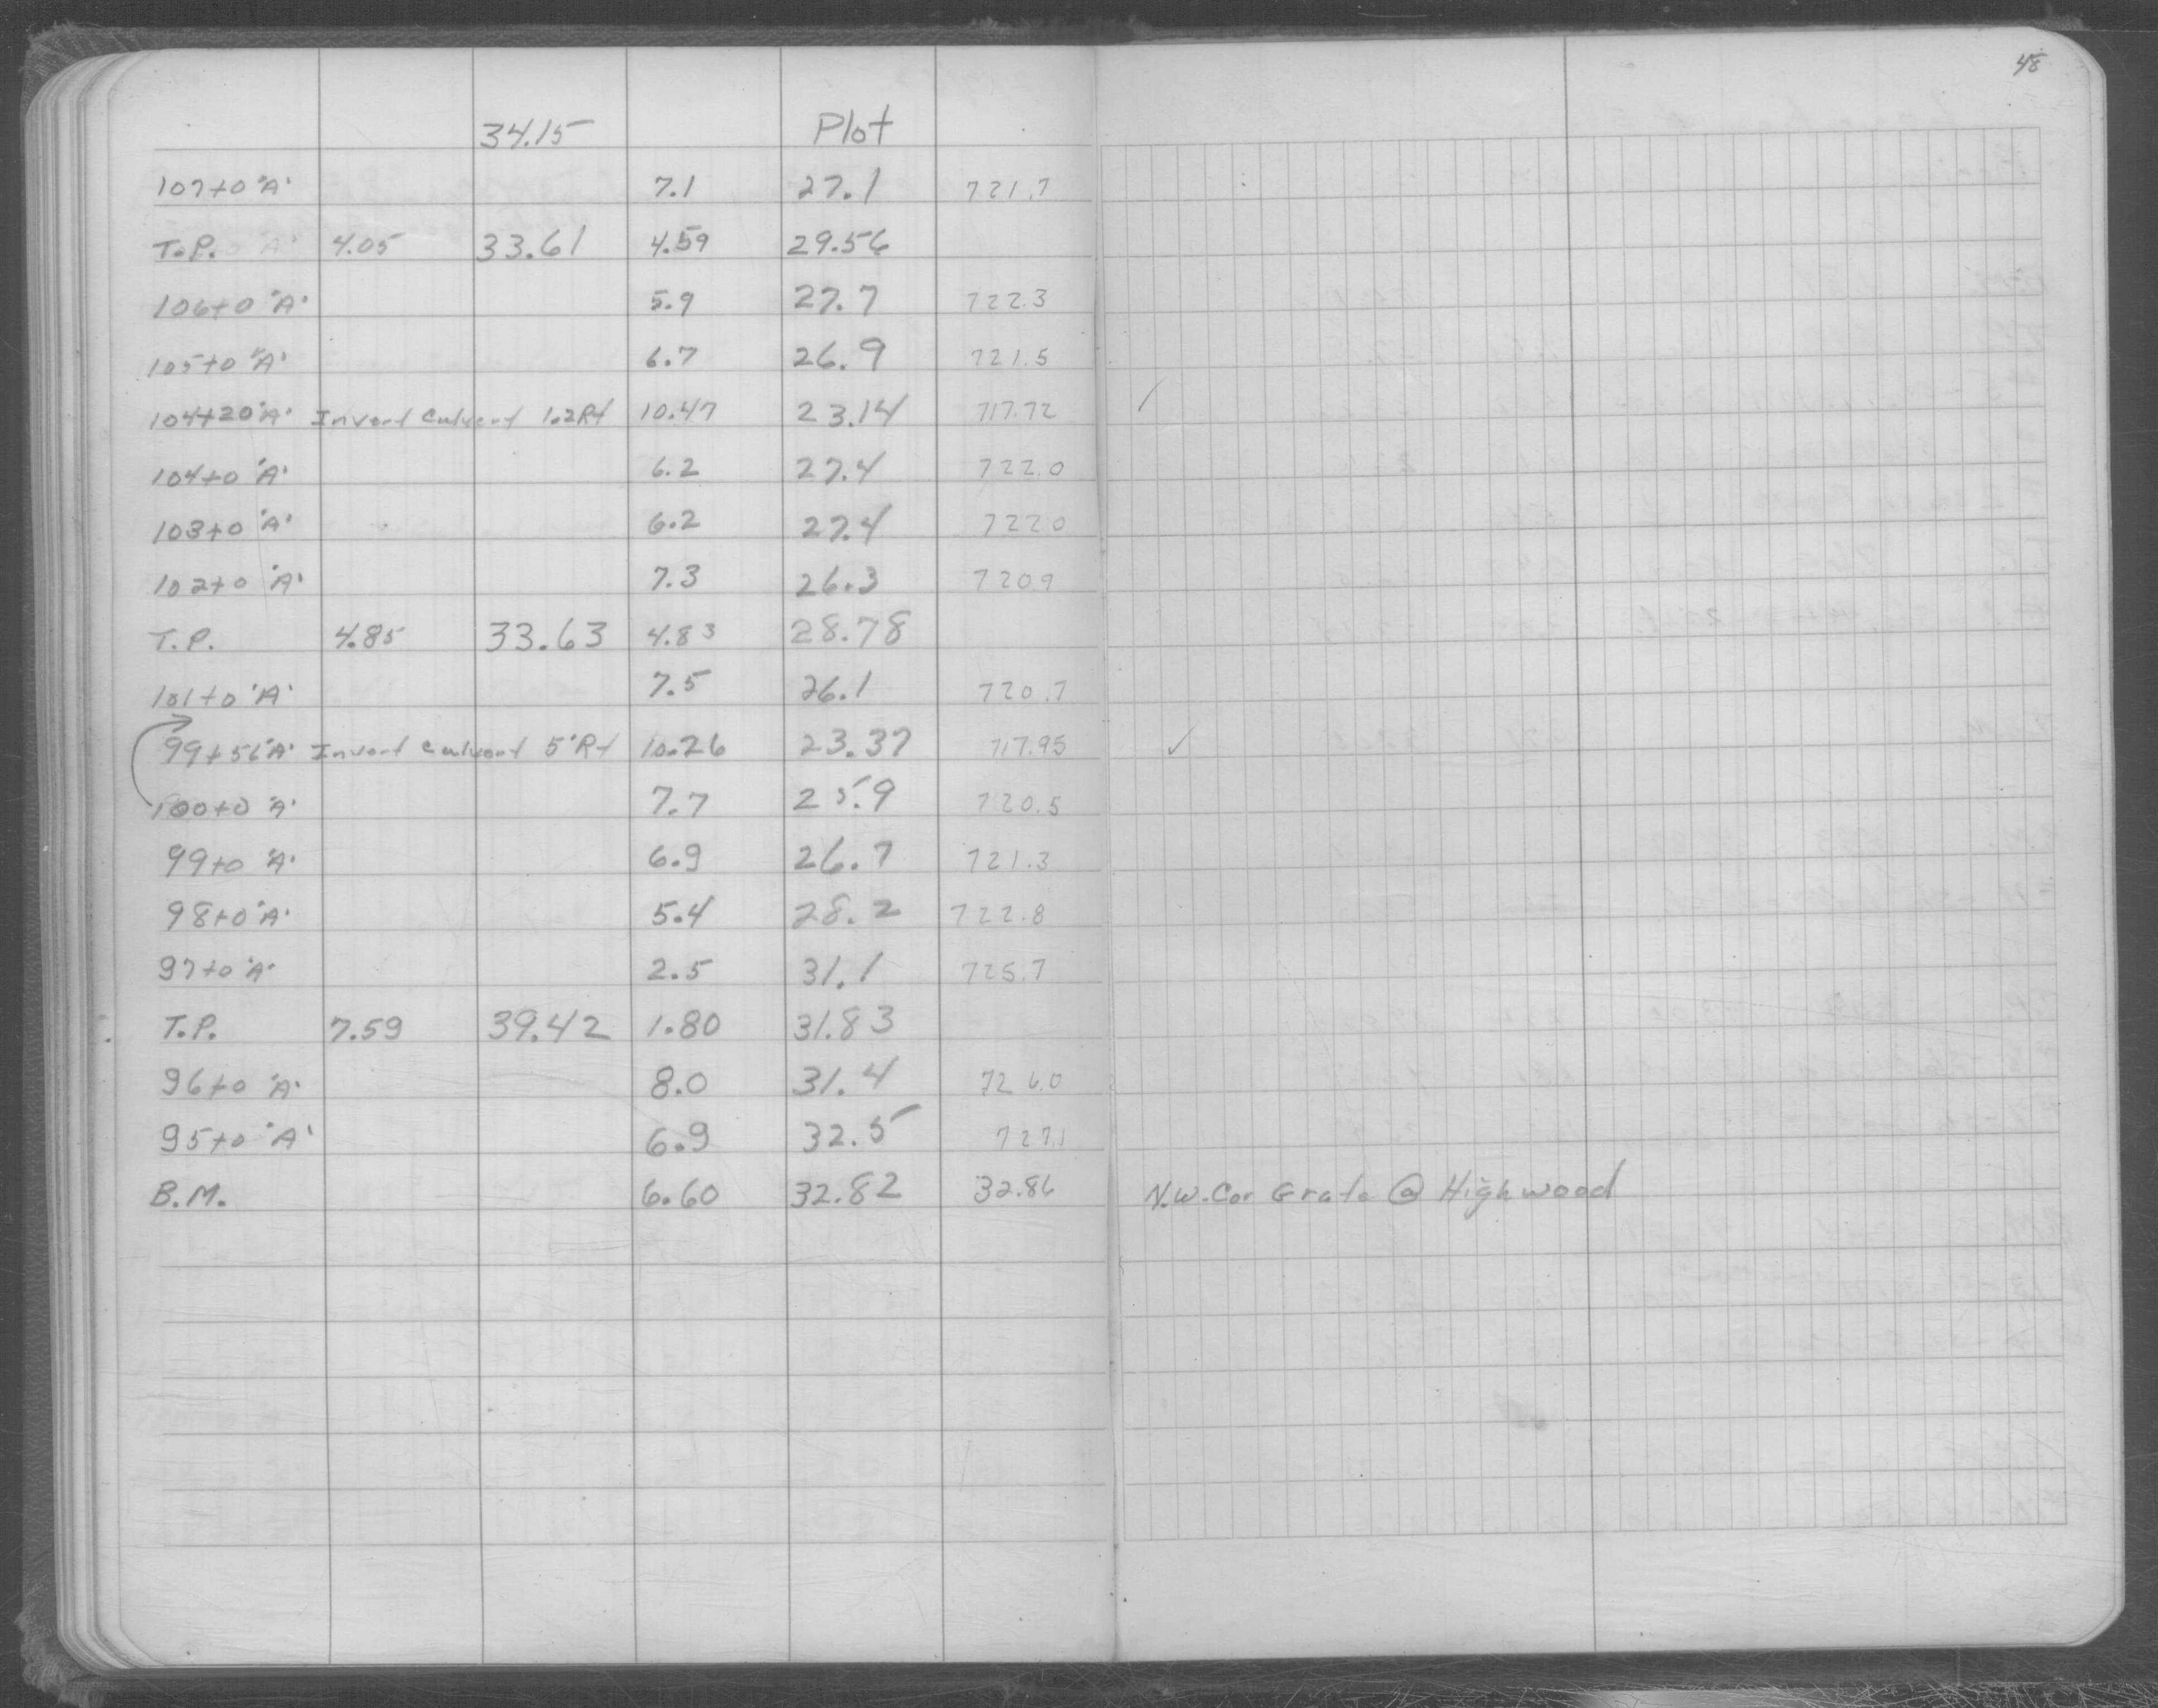 48
34.15 Plot
107+0 "A" 7.1 27.1 721.7
T.P. 4.05 33.61 4.59 29.56
106+0 "A" 5.9 27.7 722.3
105+0 "A" 6.7 26.9 721.5
104+20 "A" Invert Culvert 1.2 Rt 10.47 23.14 717.72 ✓
104+0 "A" 6.2 27.4 722.0
103+0 "A" 6.2 27.4 722 0
102+0 "A" 7.3 26.3 720 9
T.P. 4.85 33.63 4.83 28.78
101+0 "A" 7.5 26.1 720.7
99+56 "A" Invert Culvert 5' Rt 10.26 23.37 717.95 ✓
100+0 "A" 7.7 25.9 720.5
99+0 "A" 6.9 26.7 721.3
98+0 "A" 5.4 28.2 722.8
97+0 "A" 2.5 31.1 725.7
T.P. 7.59 39.42 1.80 31.83
96+0 "A" 8.0 31.4 726.0
95+0 "A" 6.9 32.5 727.1
B.M. 6.60 32.82 32.86 N.W. Cor Grate @ Highwood